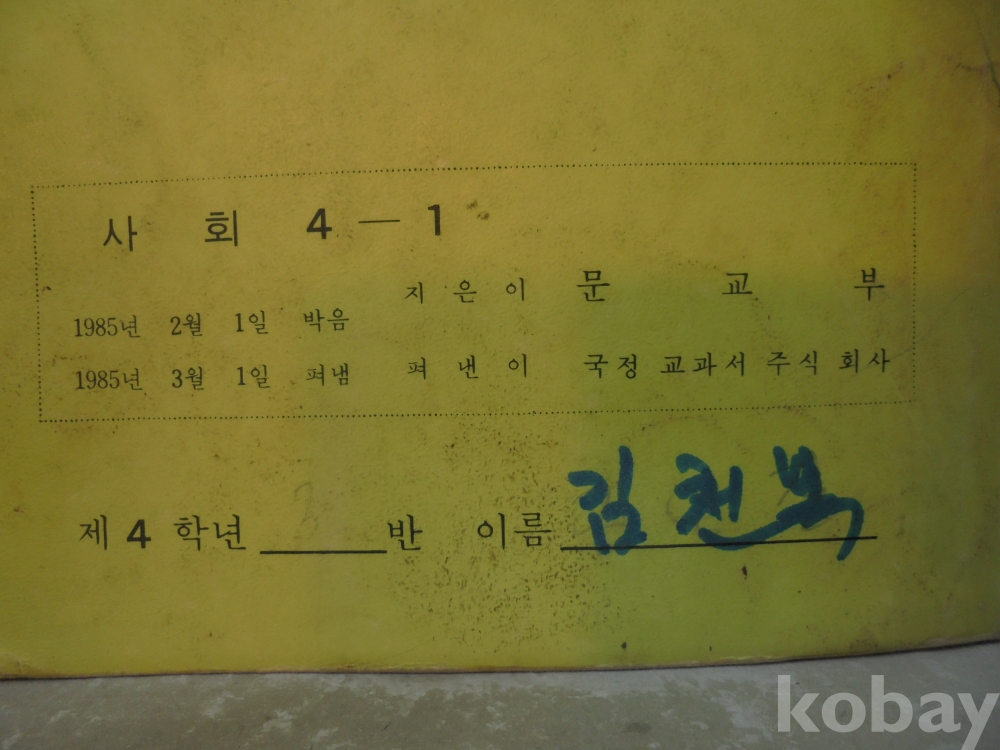 사 회 4-1
지 은 이 문 교 부
1985년 2월 1일 박음
1985년 3월 1일 펴냄 펴 낸 이 국정 교과서 주식 회사
제 4 학년 3 반 이름 김천복
kobay